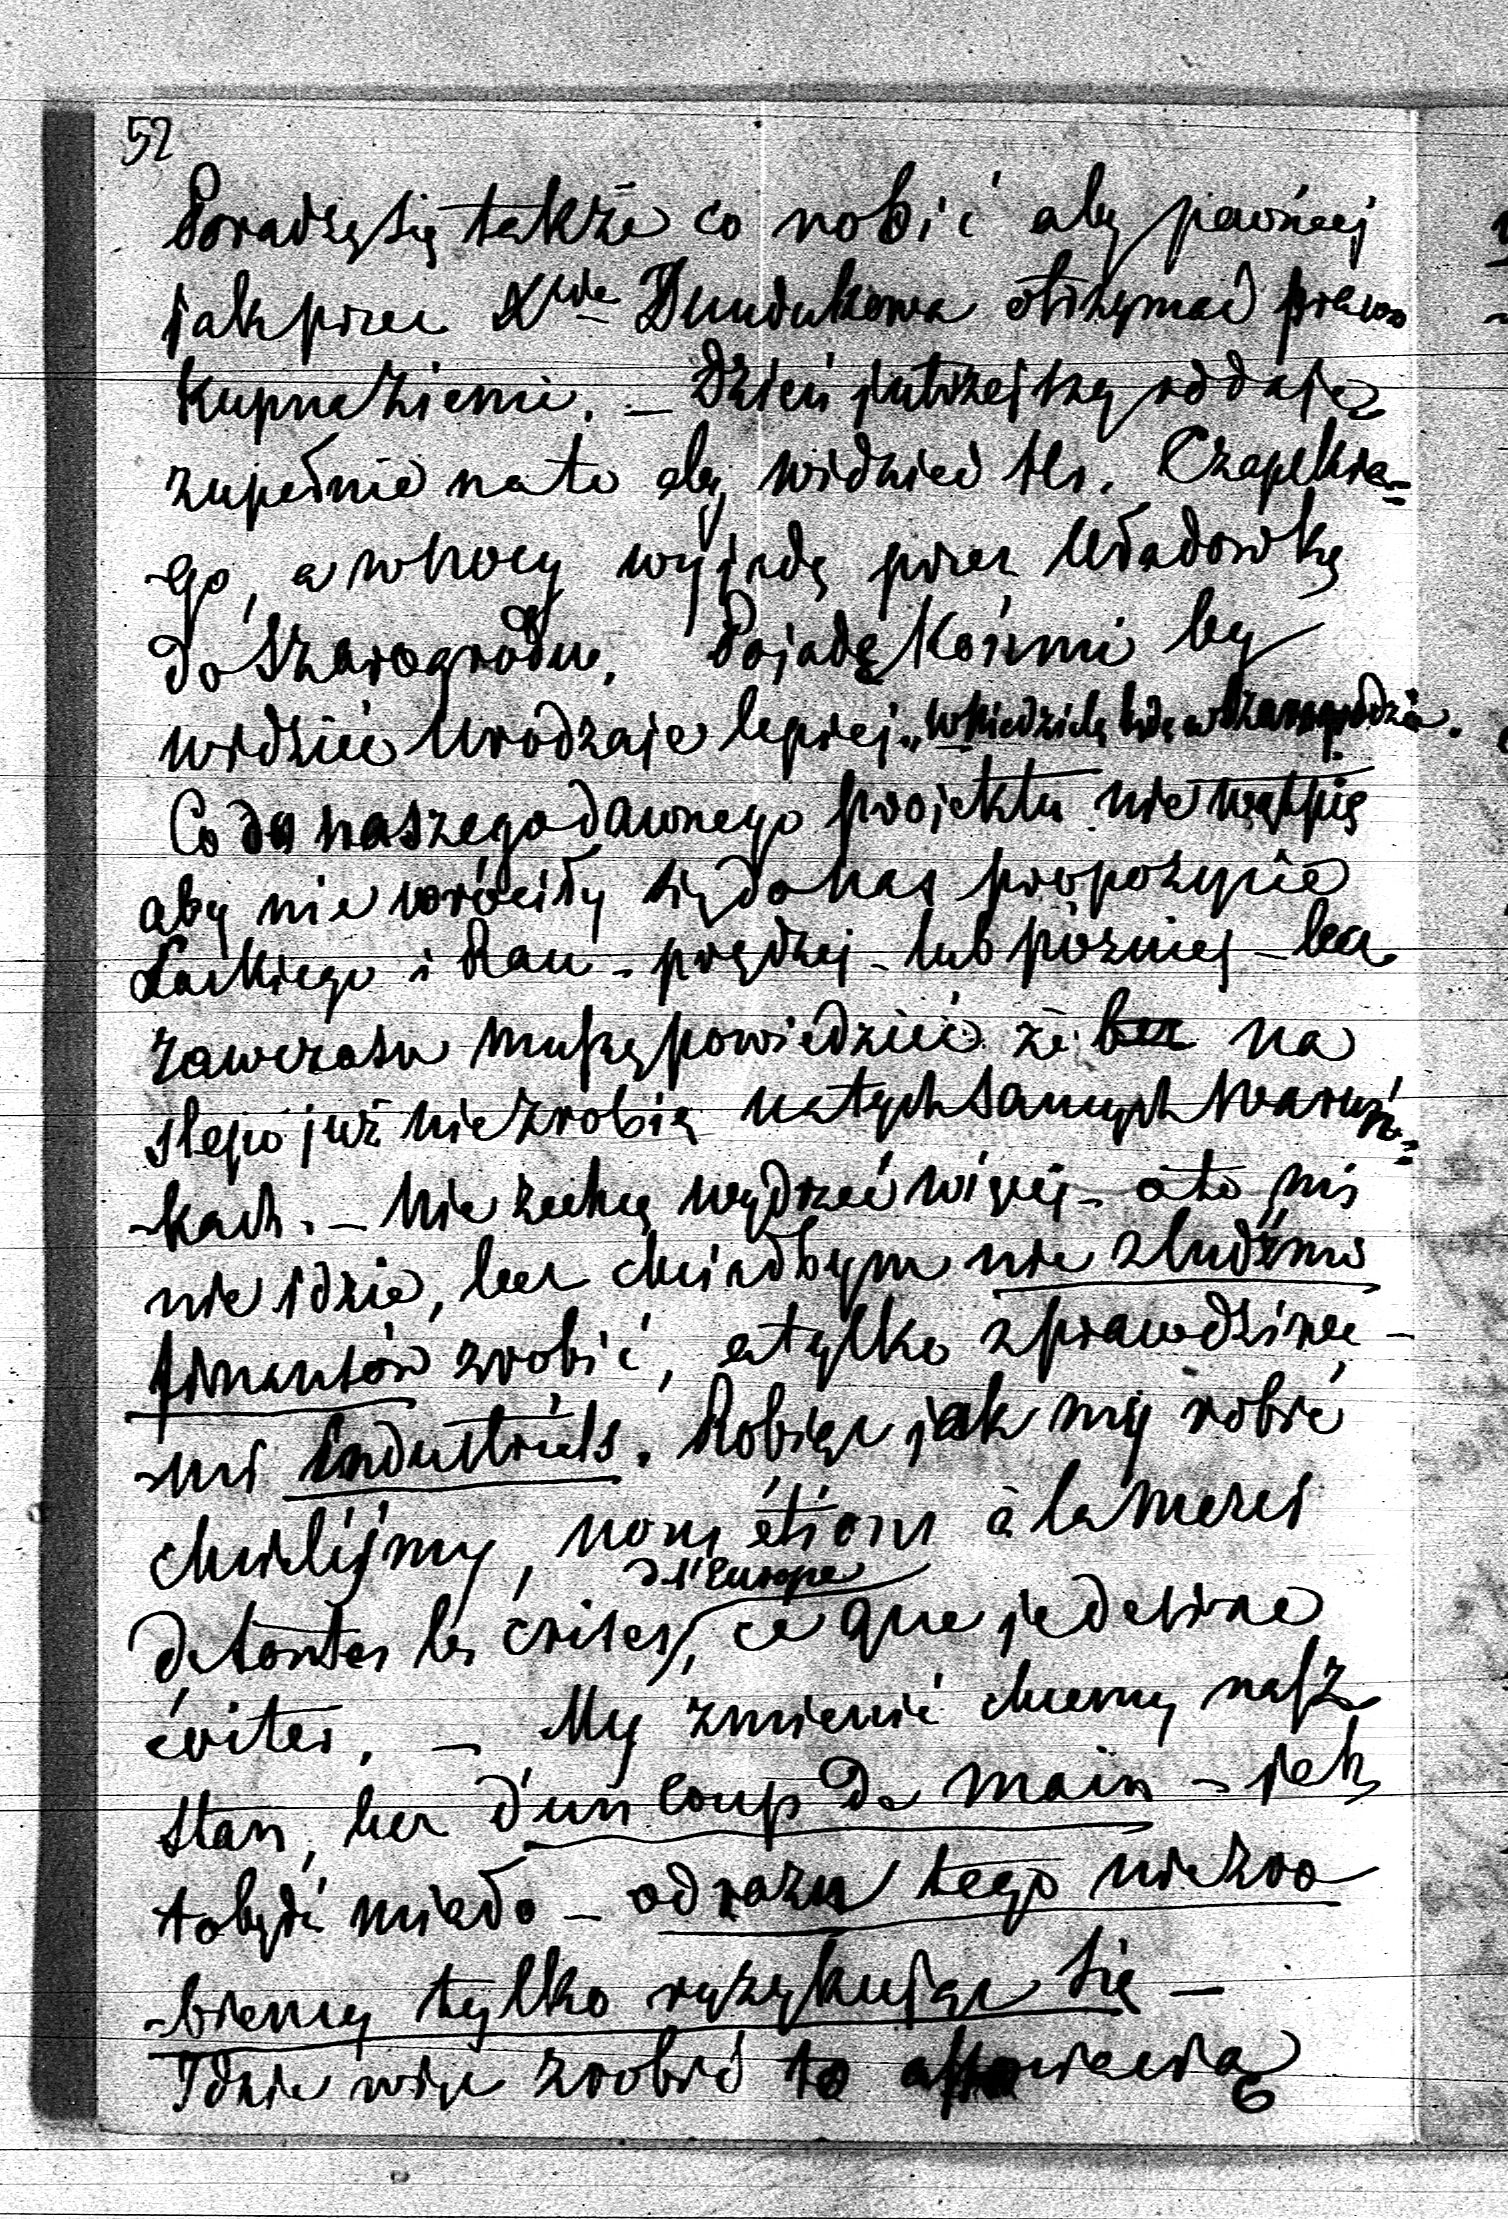 52
Poradzę się także co robić aby pewniej
jak przez Xcia Dundukowa otrzymać prawo
kupna ziemi. – Dzień jutrzejszy oddaję
zupełnie na to aby widzieć Hr. Czapskie=
-go, a w nocy wyjadę przez Uładowkę
do Szarogrodu. Pojadę końmi by
widzieć urodzaje lepiej. w Niedzielę będę w Szarogrodzie.
Co do naszego dawnego projektu nie wątpię
aby nie wróciły się do nas propozycie
Lackiego i Rau – prędzej – lub pózniej – lecz
zawczasu muszę powiedzieć że na
ślepo już nie zrobię na tych samych warun=
-kach. – Nie że chcę wydrzeć więcej – o to mi
nie idzie, lecz chciałbym nie z ludźmi
finansów zrobić, a tylko z prawdziwe-
-mi Industriels. Robiąc jak my robić
chcieliśmy, nous étions à la merci
de toutes les crises de l'Europe, ce que je desire
éviter. – My zmienić chcemy nasz
stan, lecz d'un coup de main – jak
to być miało – od razu tego nie zro
-biemy tylko ryzykując się –
Idzie więc zrobić to